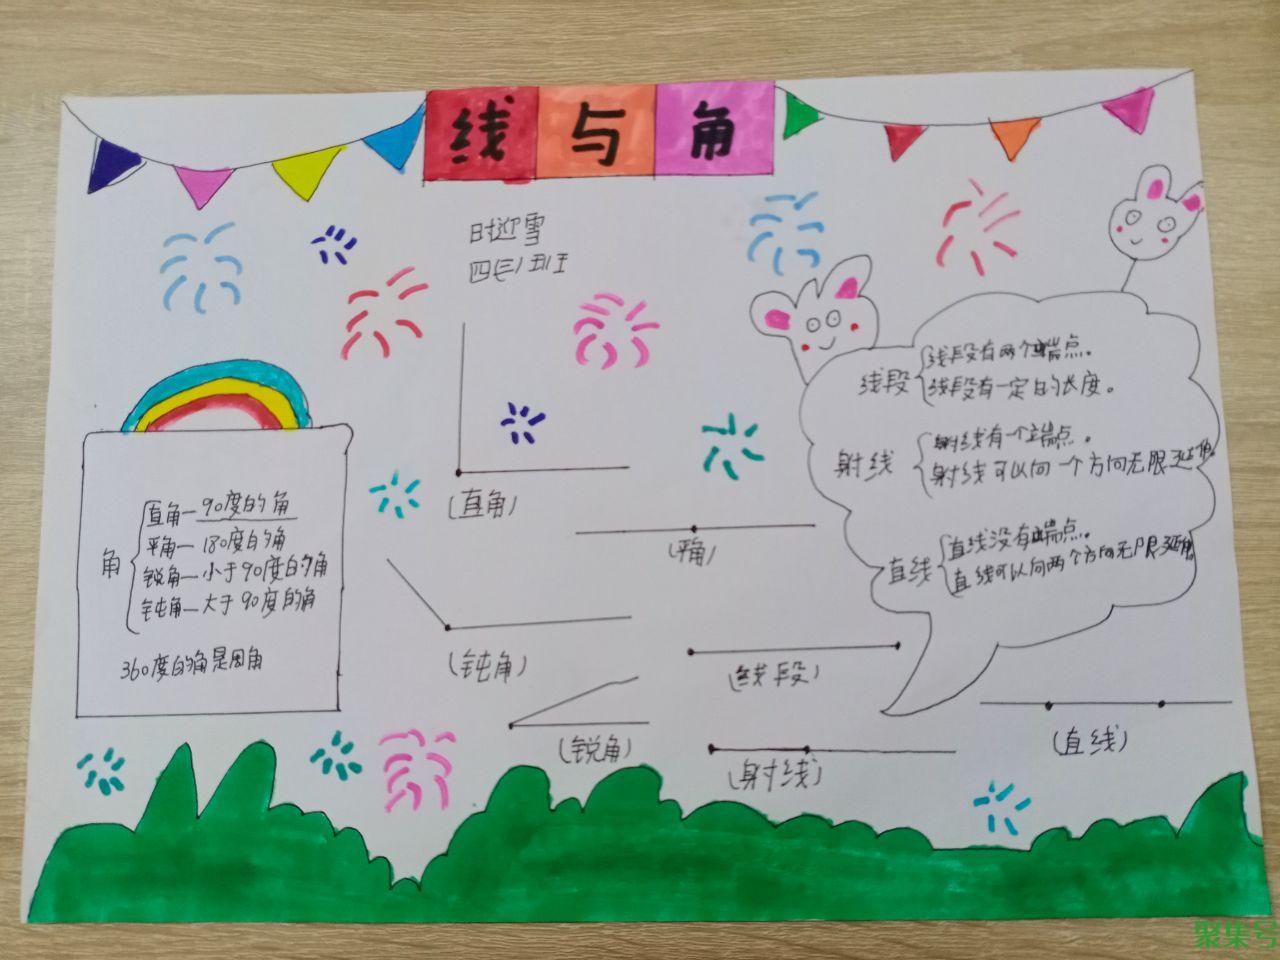 线与角
时迎雪
四(三)班
(直角)
(平角)
(钝角)
(线段)
(锐角)
(射线)
(直线)
角
直角—90度的角
平角—180度的角
锐角—小于90度的角
钝角—大于90度的角
360度的角是周角
线段
线段有两个端点。
线段有一定的长度。
射线
射线有一个端点。
射线可以向一个方向无限延伸。
直线
直线没有端点。
直线可以向两个方向无限延伸。
聚集号